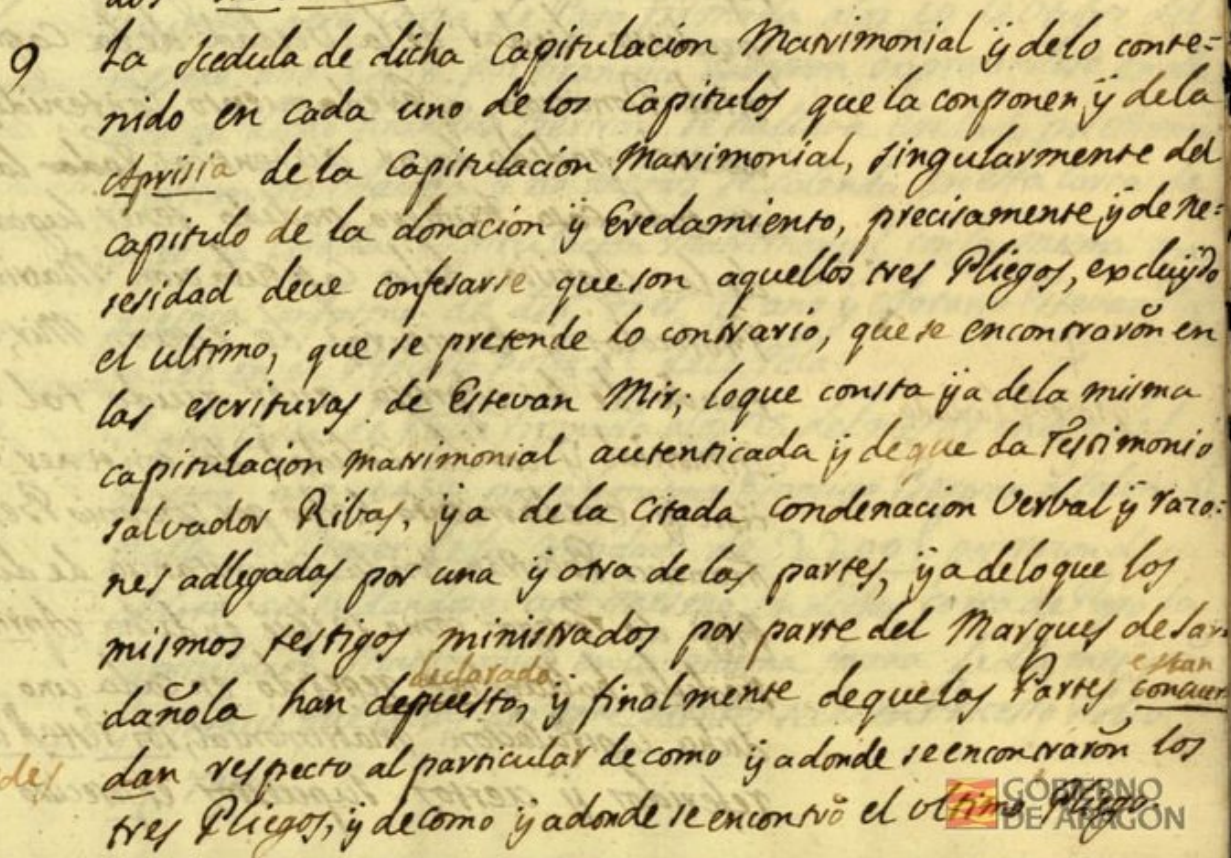 9 La scedula de dicha Capitulacion Matrimonial ÿ de lo conte=
nido en cada uno de los Capitulos que la conponen, ÿ de la
Aprisia de la Capitulacion Matrimonial, singularmente del
capitulo de la donacion ÿ Eredamiento, precisamente, ÿ de ne=
sesidad deve confesarse que son aquellos tres Pliegos, excluÿdo
el ultimo, que se pretende lo contrario, que se encontraron en
las escrituras de Estevan Mir; lo que consta ÿa de la misma
capitulacion matrimonial autenticada ÿ de que da Testimonio
salvador Ribas, ÿa de la Citada condenacion Verbal ÿ razo=
nes adlegadas por una ÿ otra de las partes, ÿa de lo que los
mismos testigos ministrados por parte del Marques de Sar
declarado
estan
dañola han depuesto, ÿ finalmente de que las Partes concuer
des
dan respecto al particular de como ÿ adonde se encontraron los
tres Pliegos, ÿ de como ÿ adonde se encontró el ultimo Pliego.
GOBIERNO
DE ARAGON